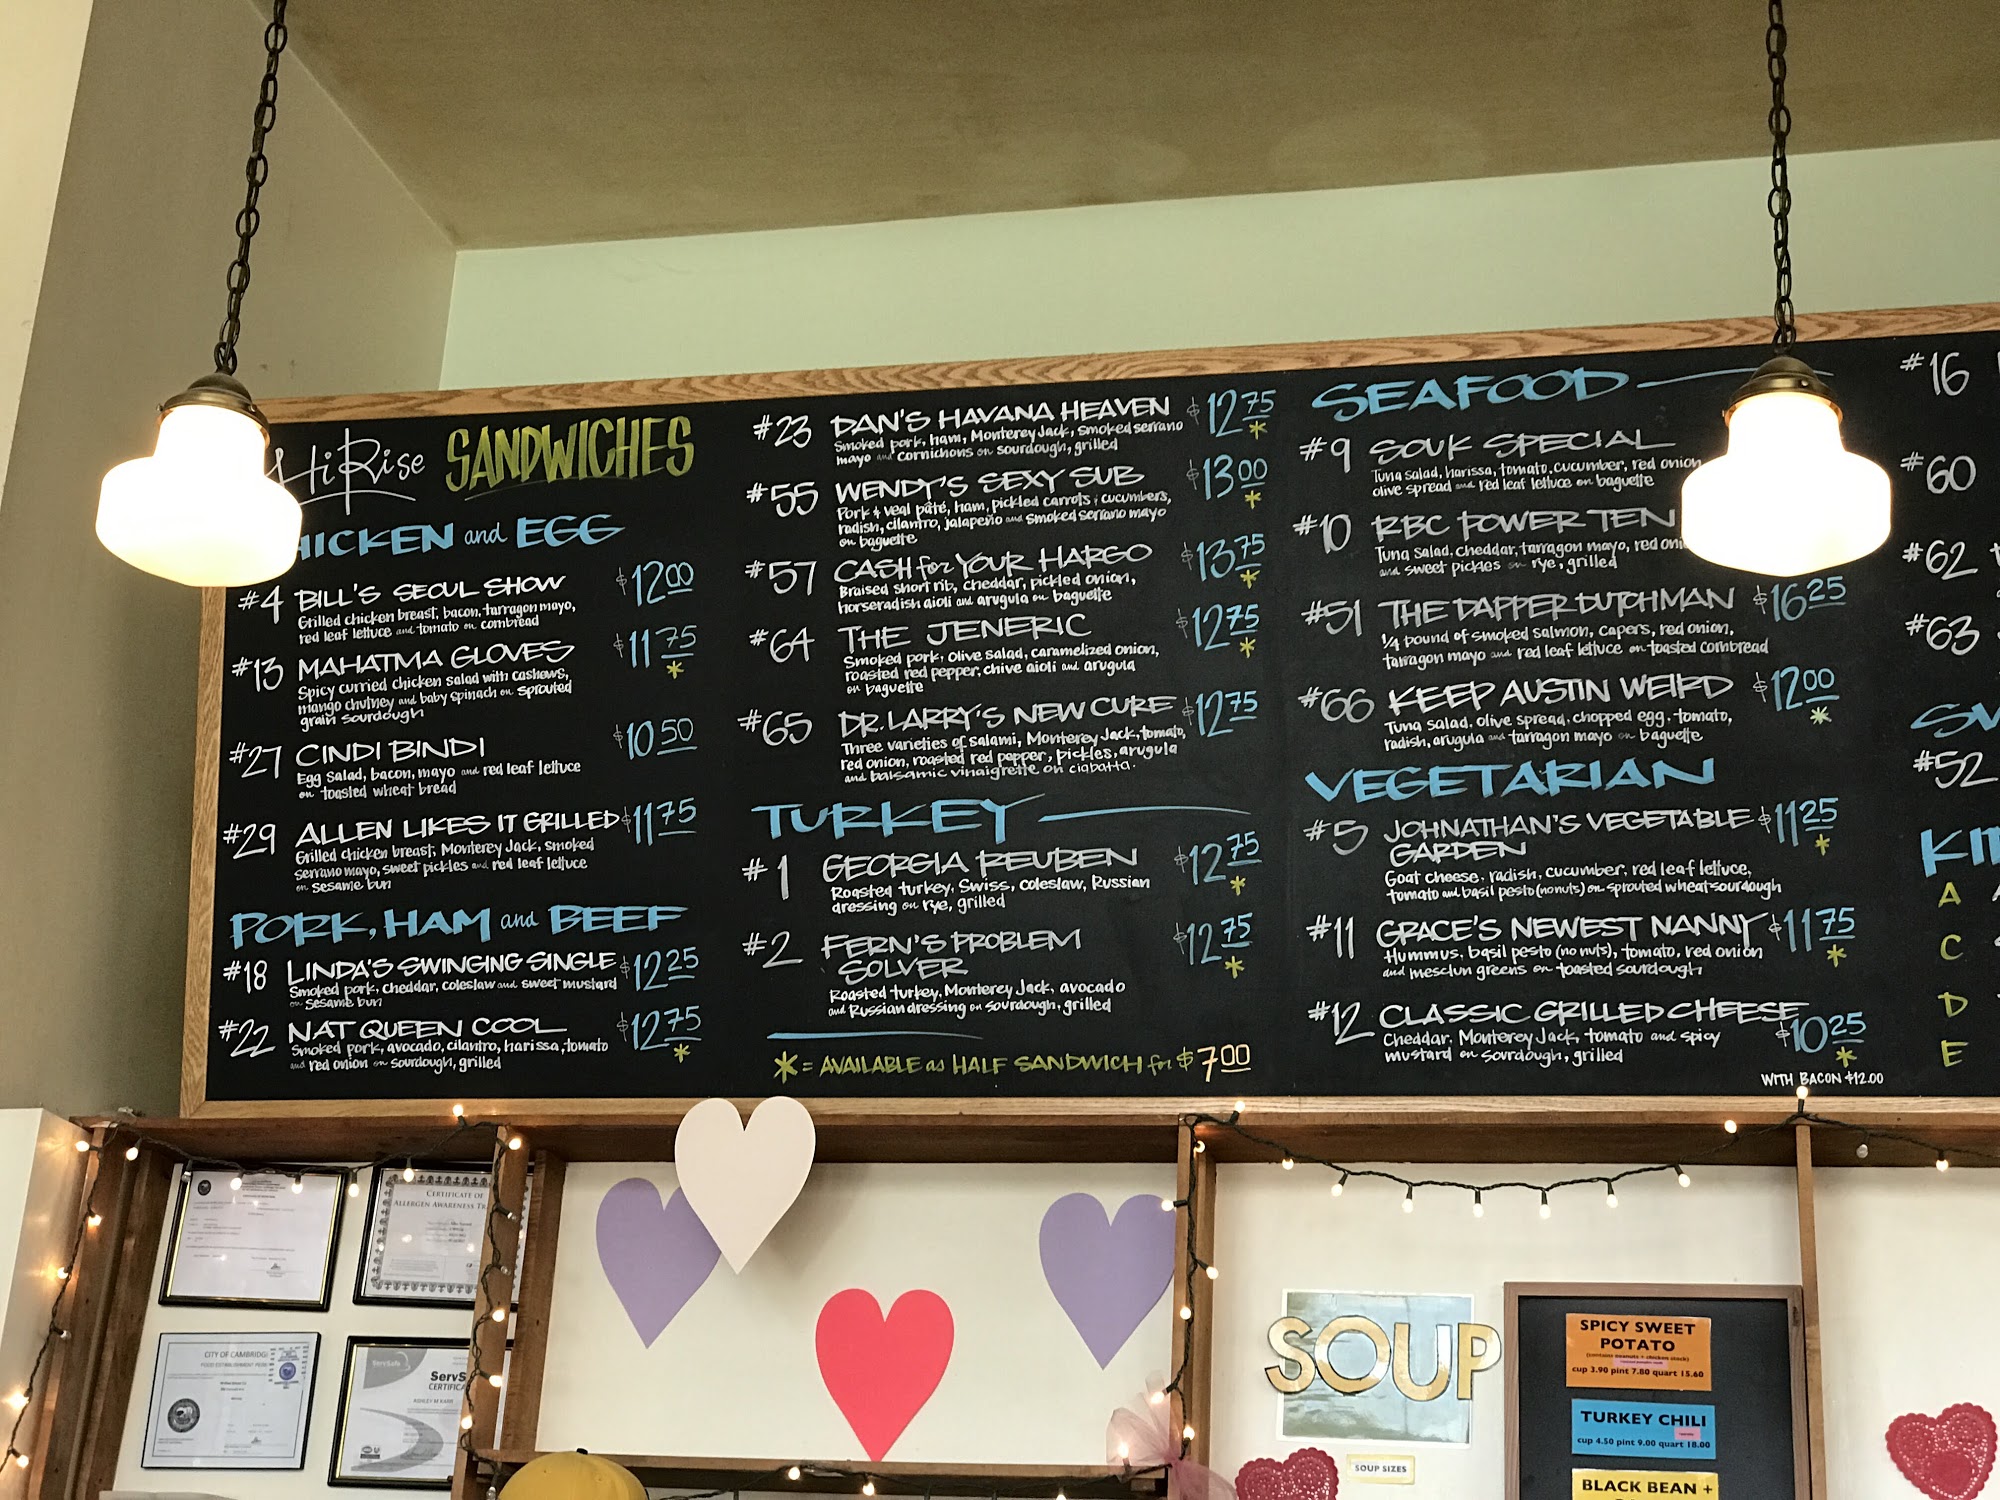 HiRise SANDWICHES
HICKEN and EGG
#4 BILL'S SEOUL SHOW $12.00
Grilled chicken breast, bacon, tarragon mayo,
red leaf lettuce and tomato on cornbread
#13 MAHATMA GLOVES $11.75 *
Spicy curried chicken salad with cashews,
mango chutney and baby spinach on sprouted
grain sourdough
#27 CINDI BINDI $10.50
Egg salad, bacon, mayo and red leaf lettuce
on toasted wheat bread
#29 ALLEN LIKES IT GRILLED $11.75
Grilled chicken breast, Monterey Jack, smoked
serrano mayo, sweet pickles and red leaf lettuce
on sesame bun
PORK, HAM and BEEF
#18 LINDA'S SWINGING SINGLE $12.25
Smoked pork, cheddar, coleslaw and sweet mustard
on sesame bun
#22 NAT QUEEN COOL $12.75 *
Smoked pork, avocado, cilantro, harissa, tomato
and red onion on sourdough, grilled
#23 DAN'S HAVANA HEAVEN $12.75 *
Smoked pork, ham, Monterey Jack, smoked serrano
mayo and cornichons on sourdough, grilled
#55 WENDY'S SEXY SUB $13.00 *
Pork & veal pâté, ham, pickled carrots & cucumbers,
radish, cilantro, jalapeño and smoked serrano mayo
on baguette
#57 CASH for YOUR HARGO $13.75 *
Braised short rib, cheddar, pickled onion,
horseradish aioli and arugula on baguette
#64 THE JENERIC $12.75 *
Smoked pork, olive salad, caramelized onion,
roasted red pepper, chive aioli and arugula
on baguette
#65 DR. LARRY'S NEW CURE $12.75
Three varieties of salami, Monterey Jack, tomato,
red onion, roasted red pepper, pickles, arugula
and balsamic vinaigrette on ciabatta.
TURKEY
#1 GEORGIA REUBEN $12.75 *
Roasted turkey, Swiss, coleslaw, Russian
dressing on rye, grilled
#2 FERN'S PROBLEM $12.75 *
SOLVER
Roasted turkey, Monterey Jack, avocado
and Russian dressing on sourdough, grilled
* = AVAILABLE as HALF SANDWICH for $7.00
SEAFOOD
#9 SOUK SPECIAL
Tuna salad, harissa, tomato, cucumber, red onion,
olive spread and red leaf lettuce on baguette
#10 RBC POWER TEN
Tuna salad, cheddar, tarragon mayo, red oni
and sweet pickles on rye, grilled
#51 THE DAPPER DUTCHMAN $16.25
1/4 pound of smoked salmon, capers, red onion,
tarragon mayo and red leaf lettuce on toasted cornbread
#66 KEEP AUSTIN WEIRD $12.00 *
Tuna salad, olive spread, chopped egg, tomato,
radish, arugula and tarragon mayo on baguette
VEGETARIAN
#5 JOHNATHAN'S VEGETABLE $11.25 *
GARDEN
Goat cheese, radish, cucumber, red leaf lettuce,
tomato and basil pesto (no nuts) on sprouted wheat sourdough
#11 GRACE'S NEWEST NANNY $11.75 *
Hummus, basil pesto (no nuts), tomato, red onion
and mesclun greens on toasted sourdough
#12 CLASSIC GRILLED CHEESE $10.25 *
Cheddar, Monterey Jack, tomato and spicy
mustard on sourdough, grilled
WITH BACON $12.00
#16
#60
#62
#63
SW
#52
KI
A
C
D
E
CERTIFICATE OF
ALLERGEN AWARENESS TR
CITY OF CAMBRIDGE
FOOD ESTABLISHMENT PER
ServSafe
ServS
CERTIFICA
SOUP
SOUP SIZES
SPICY SWEET
POTATO
(contains peanuts + chicken stock)
cup 3.90 pint 7.80 quart 15.60
TURKEY CHILI
cup 4.50 pint 9.00 quart 18.00
BLACK BEAN +